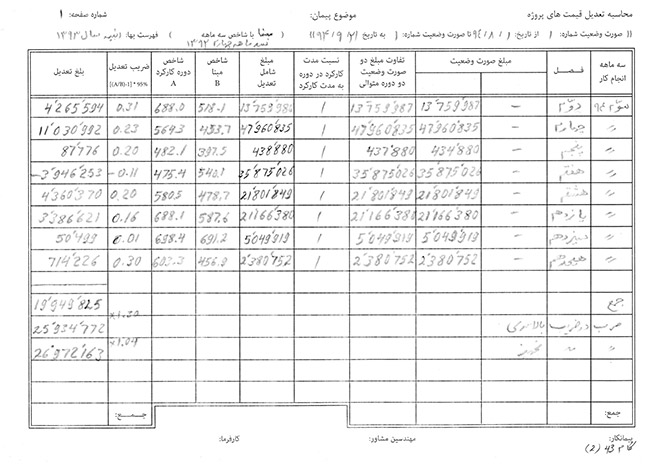 محاسبه تعدیل قیمت های پروژه موضوع پیمان: شماره صفحه: 1
(( صورت وضعیت شماره: 1 از تاریخ: 94/8/1 تا صورت وضعیت شماره: به تاریخ 94/9/31 )) مبنا با شاخص سه ماهه فهرست بها: سال 1393
سه ماهه انجام کار فصل مبلغ صورت وضعیت تفاوت مبلغ دو صورت وضعیت دو دوره متوالی نسبت مدت کارکرد در دوره به مدت کارکرد مبلغ شامل تعدیل شاخص مبنا B شاخص دوره کارکرد A ضریب تعدیل [(A/B)-1] * 95% مبلغ تعدیل
دوم - 13'759'987 13'759'987 1 13'759'986 518.1 688.0 0.31 4'265'594
〃 چهارم - 47'960'835 47'960'835 1 47'960'835 453.7 564.3 0.23 11'030'992
〃 پنجم - 434'880 437'880 1 438'880 397.5 482.1 0.20 87'776
〃 هفتم - 35'875'026 35'875'026 1 35'875'026 540.1 475.4 -0.11 -3'946'253
〃 هشتم - 21'801'849 21'801'849 1 21'801'849 478.7 580.5 0.20 4'360'370
〃 یازدهم - 21'166'380 21'166'380 1 21'166'380 587.6 688.1 0.16 3'386'621
〃 سیزدهم - 5'049'919 5'049'919 1 5'049'919 691.2 698.4 0.01 50'499
〃 هیجدهم - 2'380'752 2'380'752 1 2'380'752 456.9 603.3 0.30 714'226
جمع 19'949'825
ضرب در ضریب بالاسری ×1.30 25'934'772
〃 〃 تجهیز ×1.04 26'972'163
جمع: جمـــع:
پیمانکار: مهندسین مشاور: کارفرما:
43 (2)